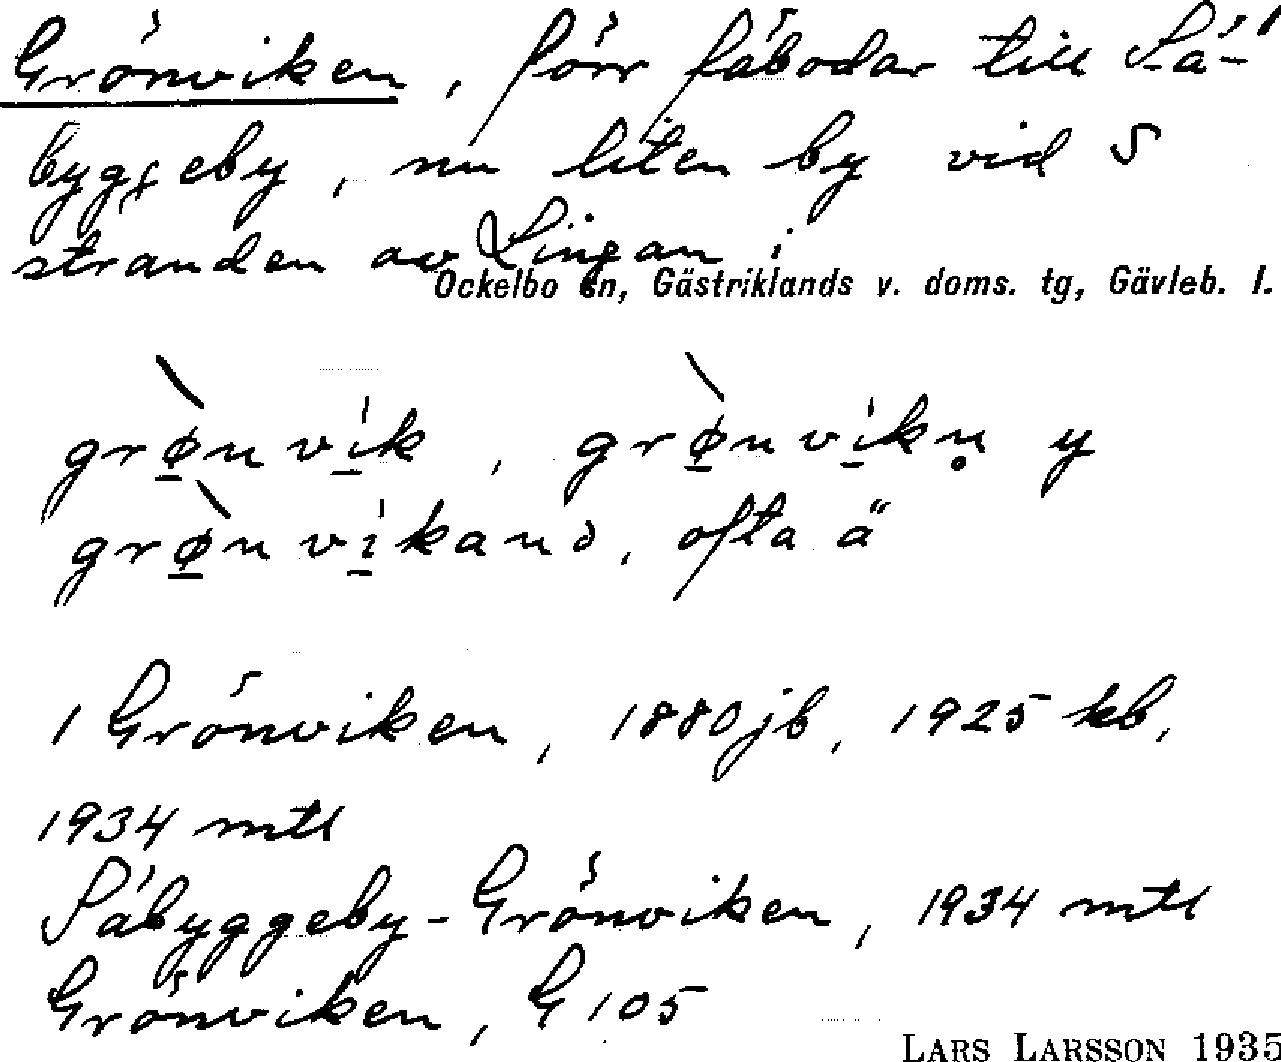 Grönviken, förr fäbodar till Så-
byggeby, nu liten by vid S
stranden av Lingan i
Ockelbo sn, Gästriklands v. doms. tg, Gävleb. l.
grø̀nvík, grø̀nvíkn̥ y
grø̀nvíkanə, ofta ä
1 Grönviken, 1880 jb, 1925 kb,
1934 mtl
Såbyggeby-Grönviken, 1934 mtl
Grönviken, G 105
LARS LARSSON 1935